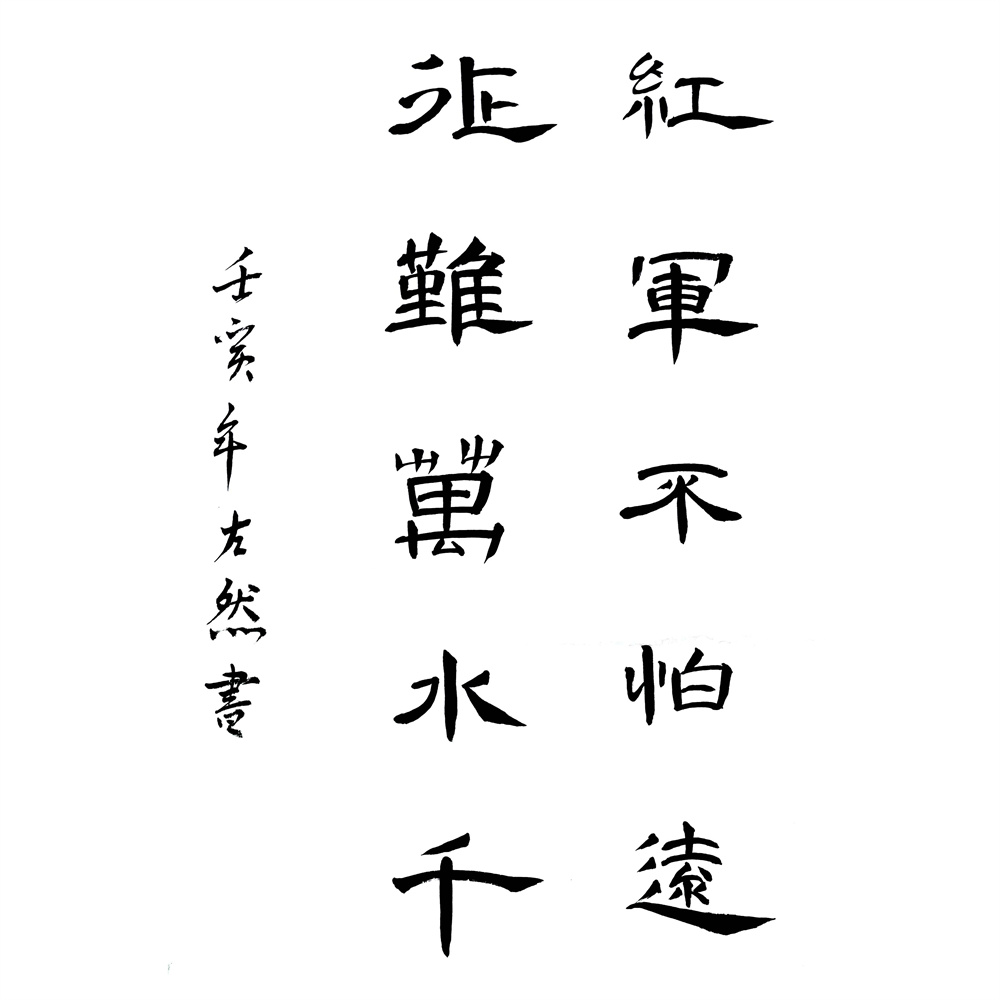 紅軍不怕遠
征難萬水千
壬寅年左然書